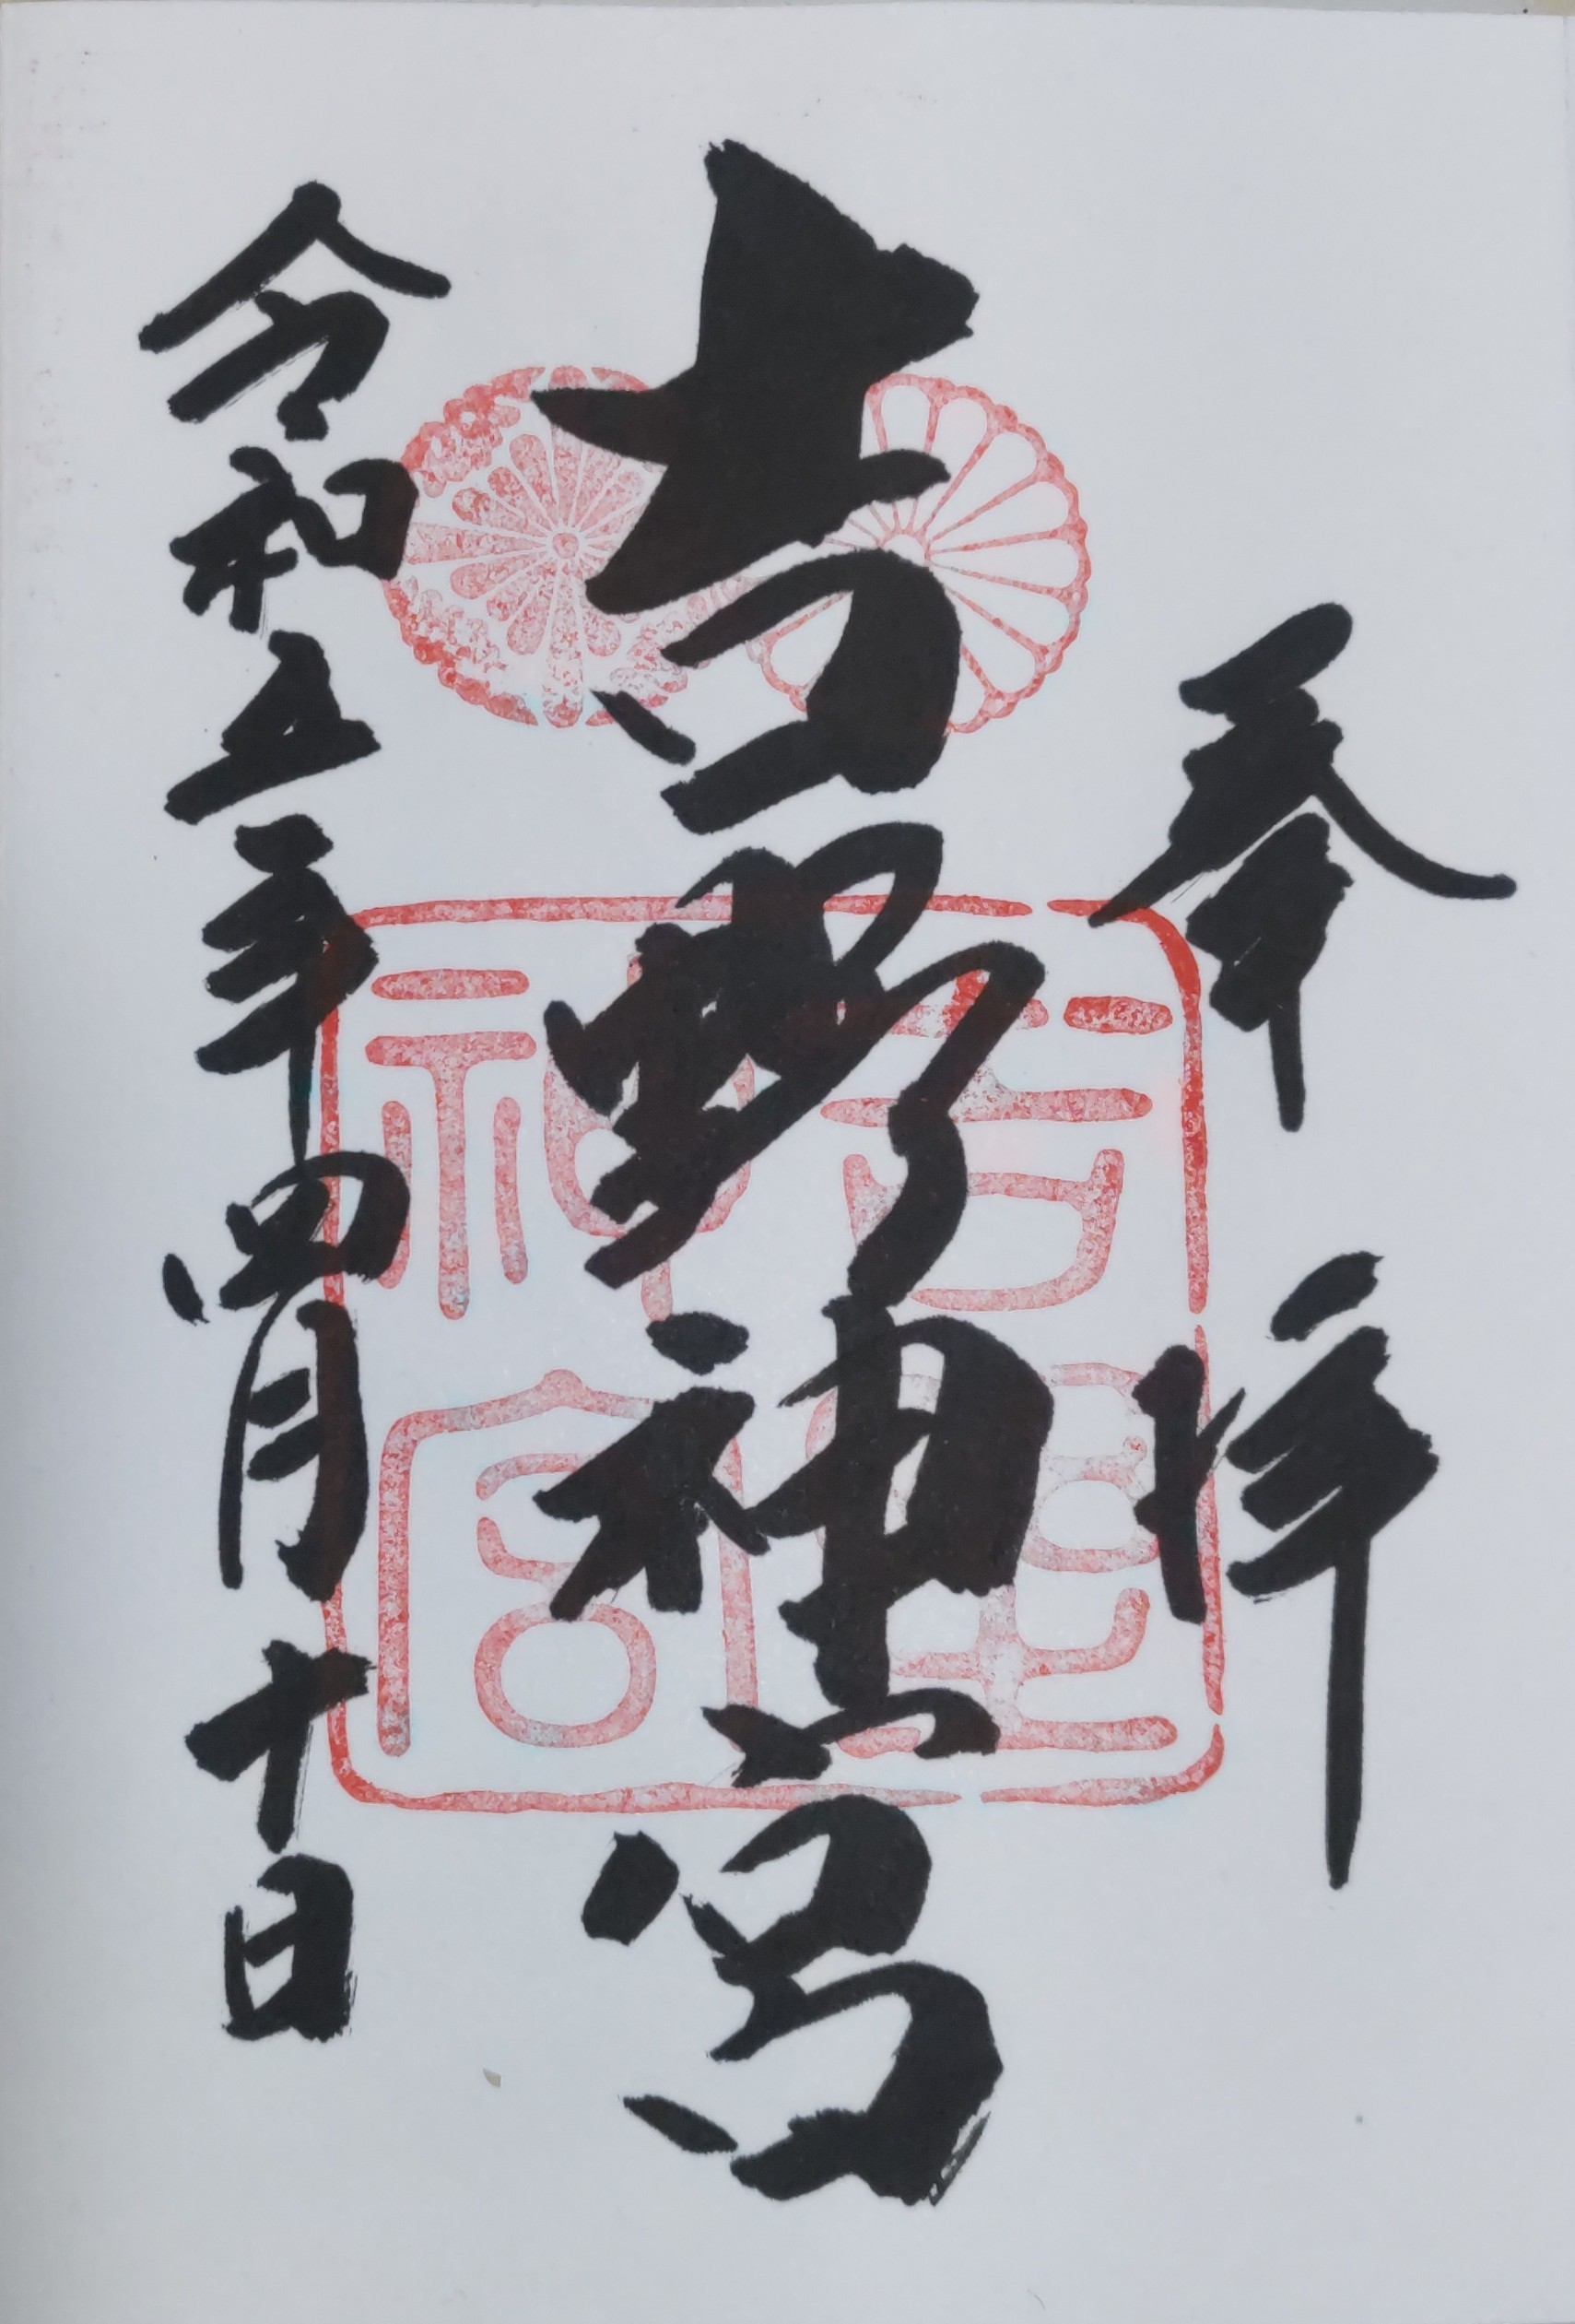 奉拝
吉野神宮
吉野神宮
令和五年四月十日